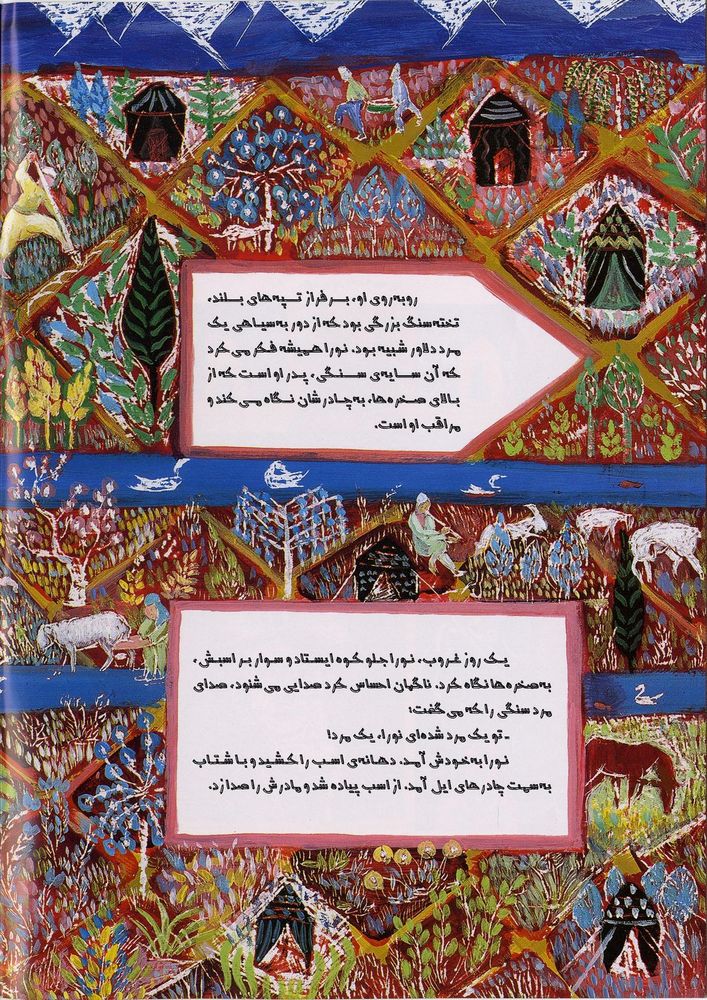 روبه‌روی او، بر فراز تپه‌های بلند،
تخته‌سنگ بزرگی بود که از دور به سیاهی یک
مرد دلاور شبیه بود. نورا همیشه فکر می‌کرد
که آن سایه‌ی سنگی، پدر او است که از
بالای صخره‌ها، به چادرشان نگاه می‌کند و
مراقب او است.
یک روز غروب، نورا جلو کوه ایستاد و سوار بر اسبش،
به صخره‌ها نگاه کرد. ناگهان احساس کرد صدایی می‌شنود، صدای
مرد سنگی را که می‌گفت:
- تو یک مرد شده‌ای نورا، یک مرد!
نورا به خودش آمد. دهانه‌ی اسب را کشید و با شتاب
به سمت چادرهای ایل آمد. از اسب پیاده شد و مادرش را صدا زد.